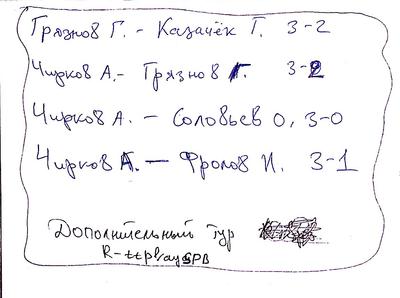 Грязнов Г. - Казачёк Т. 3-2
Чирков А. - Грязнов Г. 3-2
Чирков А. - Соловьев О, 3-0
Чирков А. - Фролов И. 3-1
Дополнительный тур